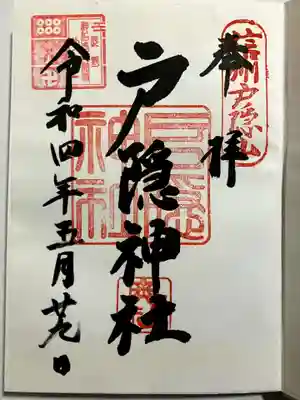 信州戸隠山
奉拝
戸隠神社
戸隠
神社
令和四年五月廿九日